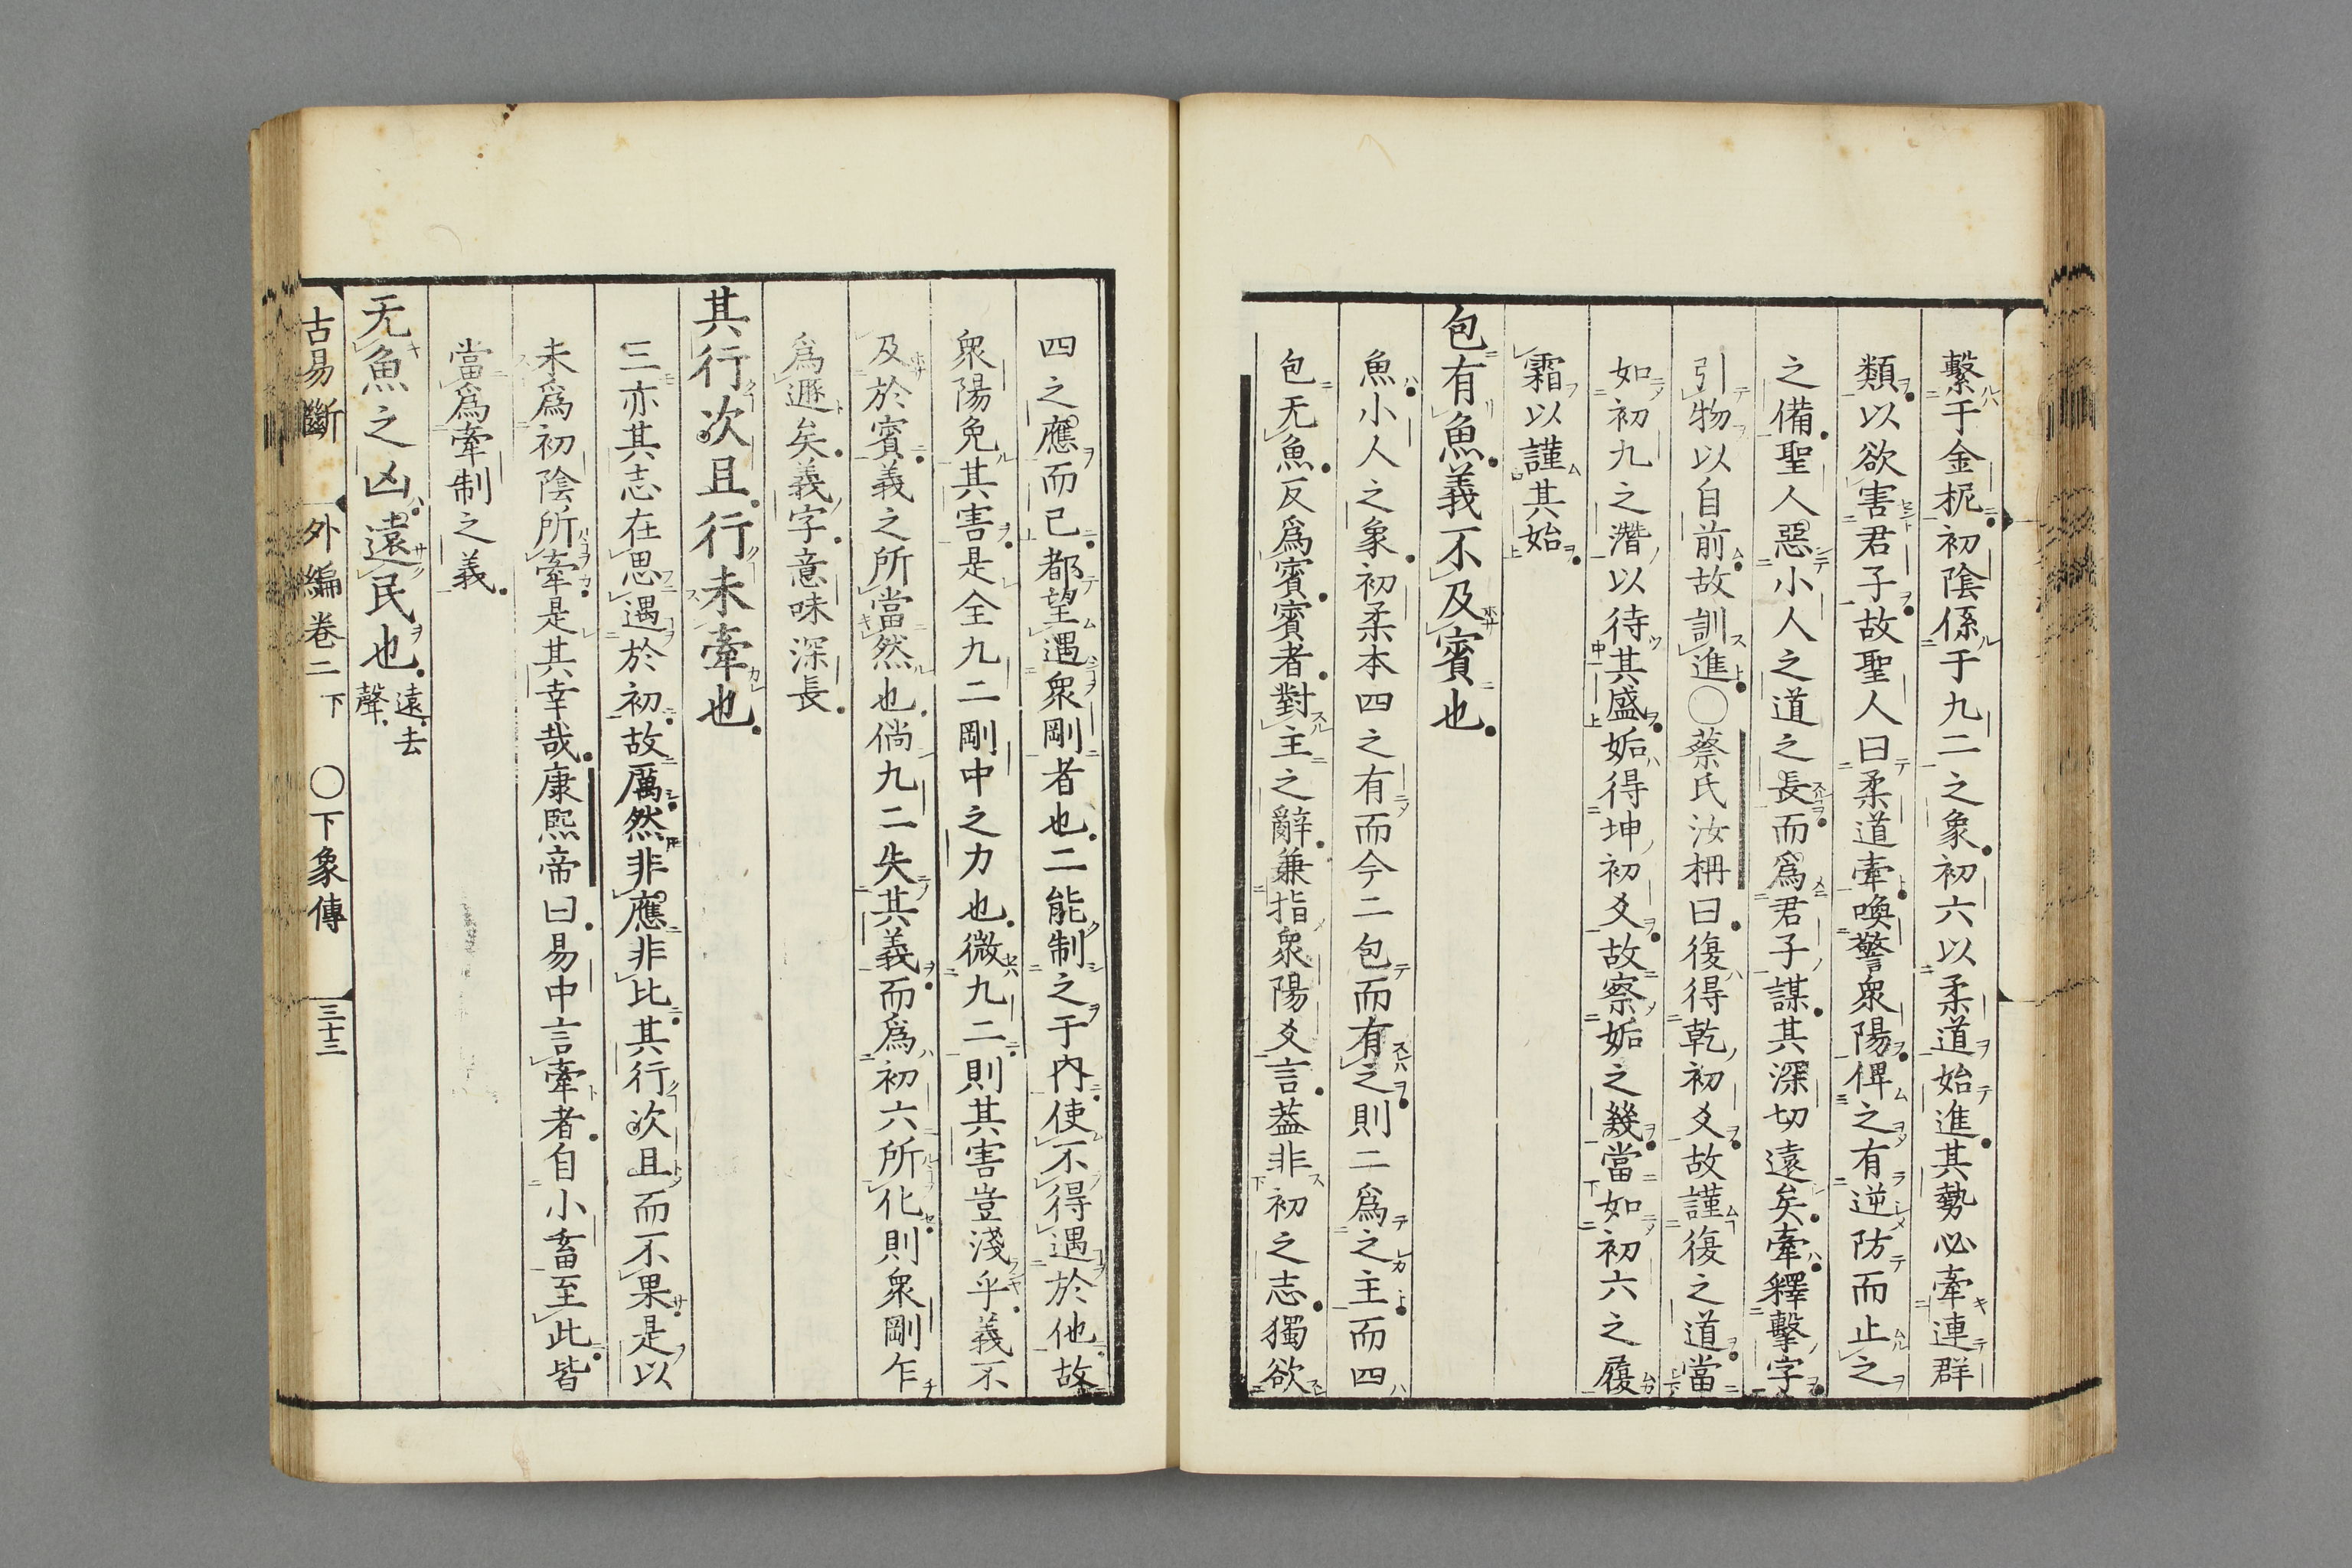 繫于金柅初陰係于九二之象初六以柔道始進其勢必牽連群
類以欲害君子故聖人曰柔道牽喚警衆陽俾之有逆防而止之
之備聖人惡小人之道之長而爲君子謀其深切遠矣牽釋擊字
引物以自前故訓進○蔡氏汝柟曰復得乾初爻故謹復之道當
如初九之潛以待其盛姤得坤初爻故察姤之幾當如初六之履
霜以謹其始
包有魚義不及賓也
魚小人之象初柔本四之有而今二包而有之則二爲之主而四
包无魚反爲賓賓者對主之辭兼指衆陽爻言葢非初之志獨欲
四之應而已都望遇衆剛者也二能制之于内使不得遇於他故
衆陽免其害是全九二剛中之力也微九二則其害豈淺乎義不
及於賓義之所當然也倘九二失其義而爲初六所化則衆剛乍
爲遯矣義字意味深長
其行次且行未牽也
三亦其志在思遇於初故厲然非應非比其行次且而不果是以
未爲初陰所牽是其幸哉康熙帝曰易中言牽者自小畜至此皆
當爲牽制之義
无魚之凶遠民也遠去聲
古易斷 外編卷二下 ○下象傳 三十三